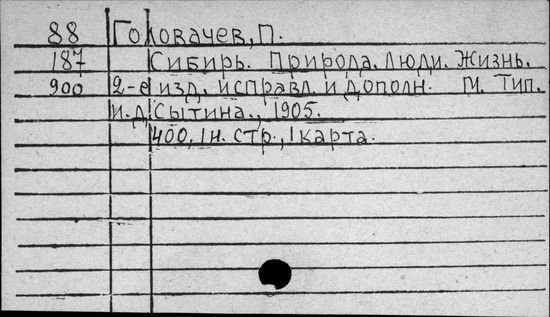 88 Головачев, П.
187 Сибирь. Природа. Люди. Жизнь.
900 2-е изд. исправл. и дополн. М. Тип.
и.д. Сытина., 1905.
400, 1н. стр., 1 карта.